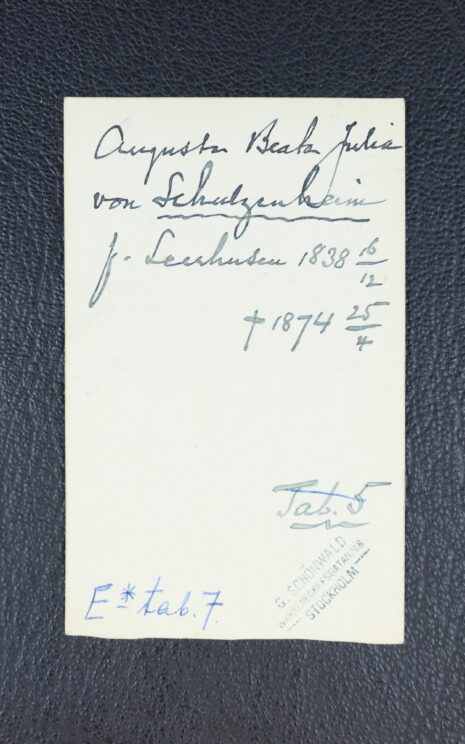 Augusta Beata Julia
von Schulzenheim
f. Leerhusen 1838 16/12
† 1874 25/4
Tab. 5
G. SCHÖNWALD
STOCKHOLM
E* tab. 7.